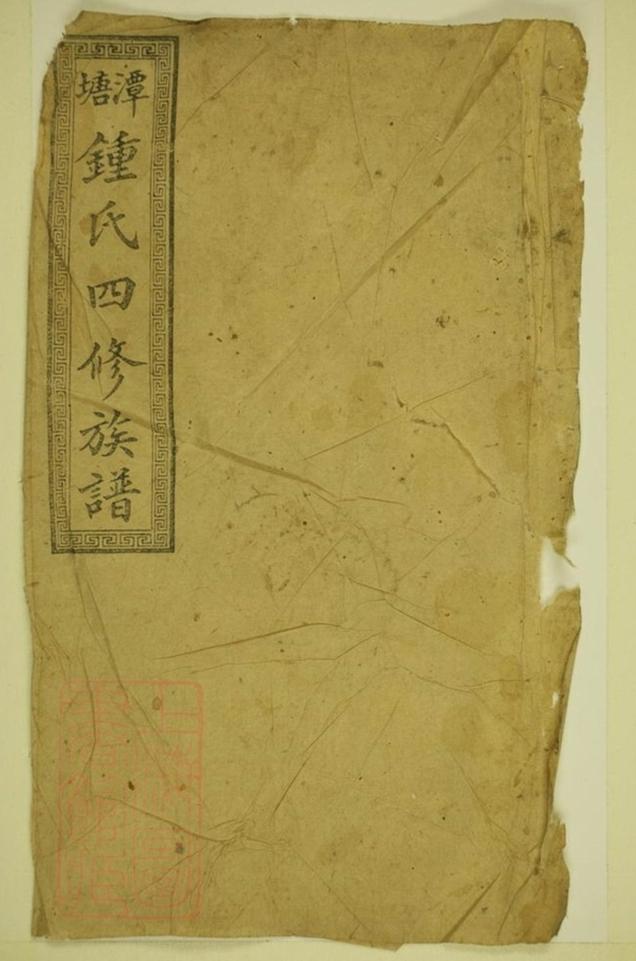 潭塘
鍾氏四修族譜